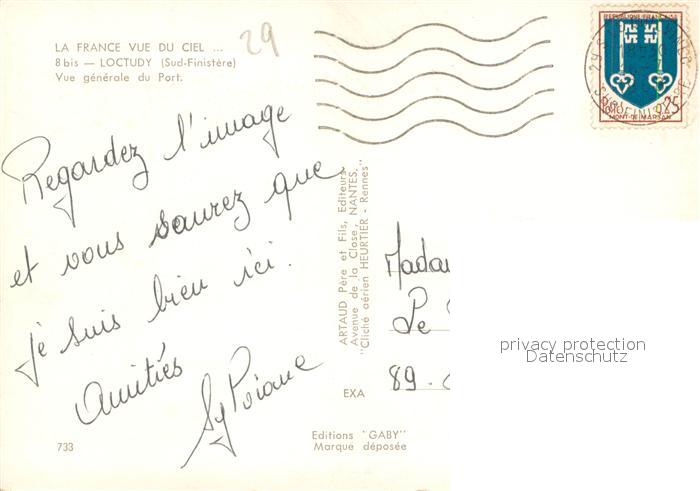 29
LA FRANCE VUE DU CIEL ...
8 bis — LOCTUDY (Sud-Finistère)
Vue générale du Port.
Regardez l'image
et vous saurez que
je suis bien ici.
Amitiés
Sylviane
733
ARTAUD Père et Fils, Editeurs
Avenue de la Close, NANTES.
"Cliché aérien HEURTIER - Rennes"
EXA
Editions "GABY"
Marque déposée
REPUBLIQUE FRANÇAISE
0,25
MONT-DE-MARSAN
Madam
Le
89
privacy protection
Datenschutz